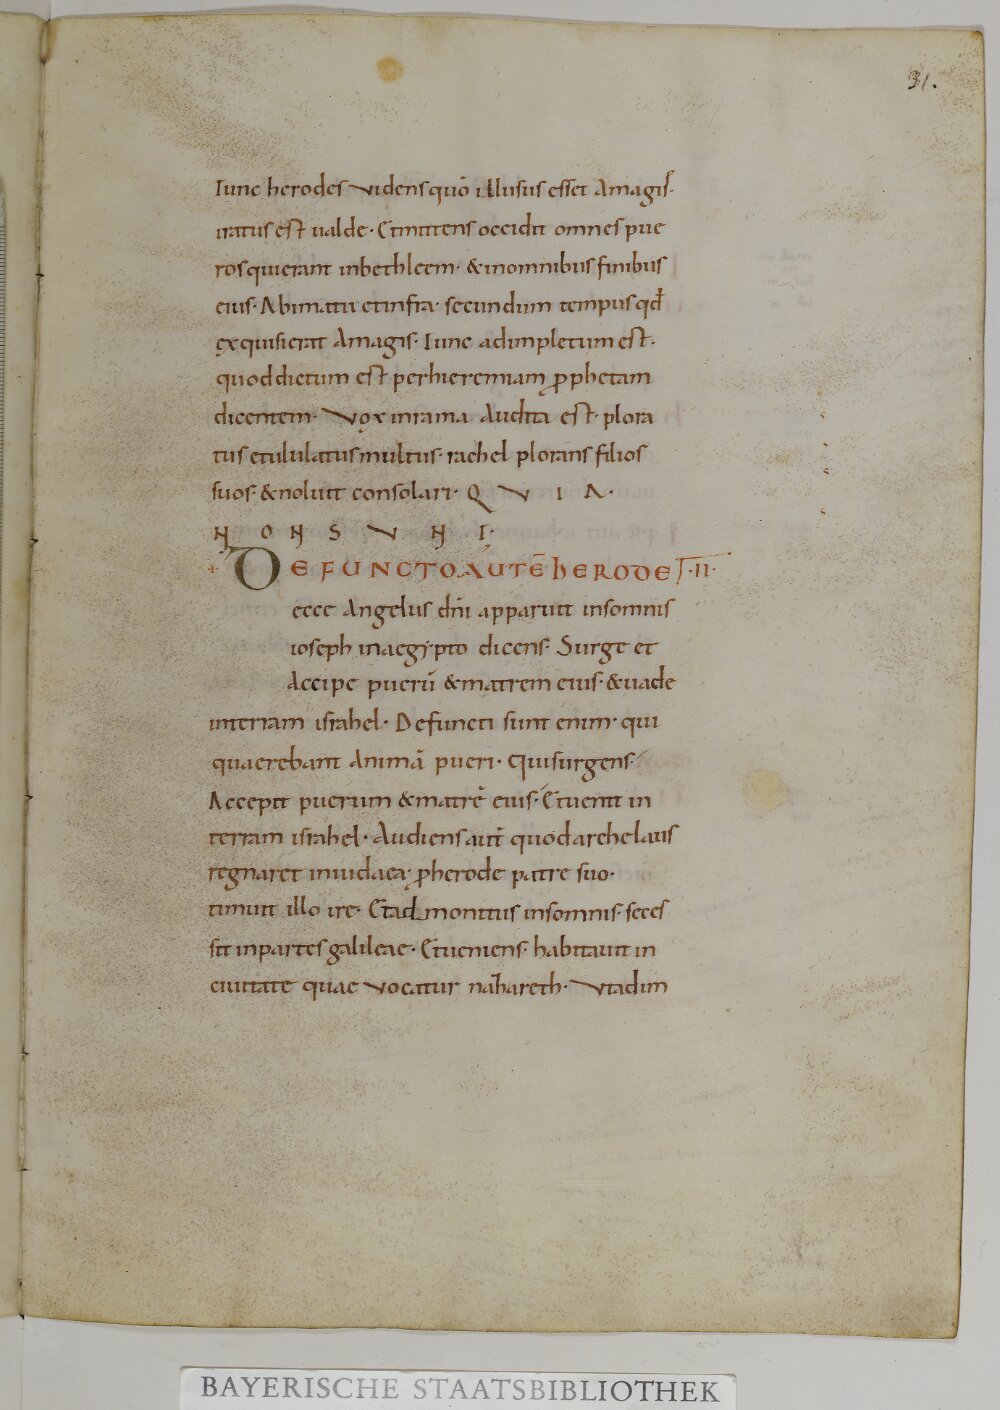 31.
Tunc herodes videns quō illusus esset Amagis·
iratus est ualde· Etmittens occidit omnes pue
ros quierant inbethleem· &inomnibus finibus
eius· Abimatu etinfra· secundum tempus qđ
exquisierat Amagis· Tunc adimpletum est·
quod dictum est perhieremiam ꝓphetam
dicentem· Vox inrama Audita est· plora
tus etululatus multus· rachel plorans filios
suos· &noluit consolari· Q V I A·
N O N S V N T·
DEFUNCTO AUTĒ hERODE ·II·
ecce Angelus dn̄i apparuit insomnis
ioseph inaegypto dicens· Surge et
Accipe puerū &matrem eius· &uade
interram israhel· Defuncti sunt enim· qui
quaerebant Animā pueri· Quisurgens·
Accepit puerum &matrē eius· Etuenit in
terram israhel· Audiens aut̄ quod archelaus
regnaret iniudaea· ꝓherode patre suo·
timuit illo ire· Etadmonitus insomnis· seces
sit inpartes galileae· Etueniens· habitauit in
ciuitate quae vocatur nazhareth· Vtadim
BAYERISCHE STAATSBIBLIOTHEK